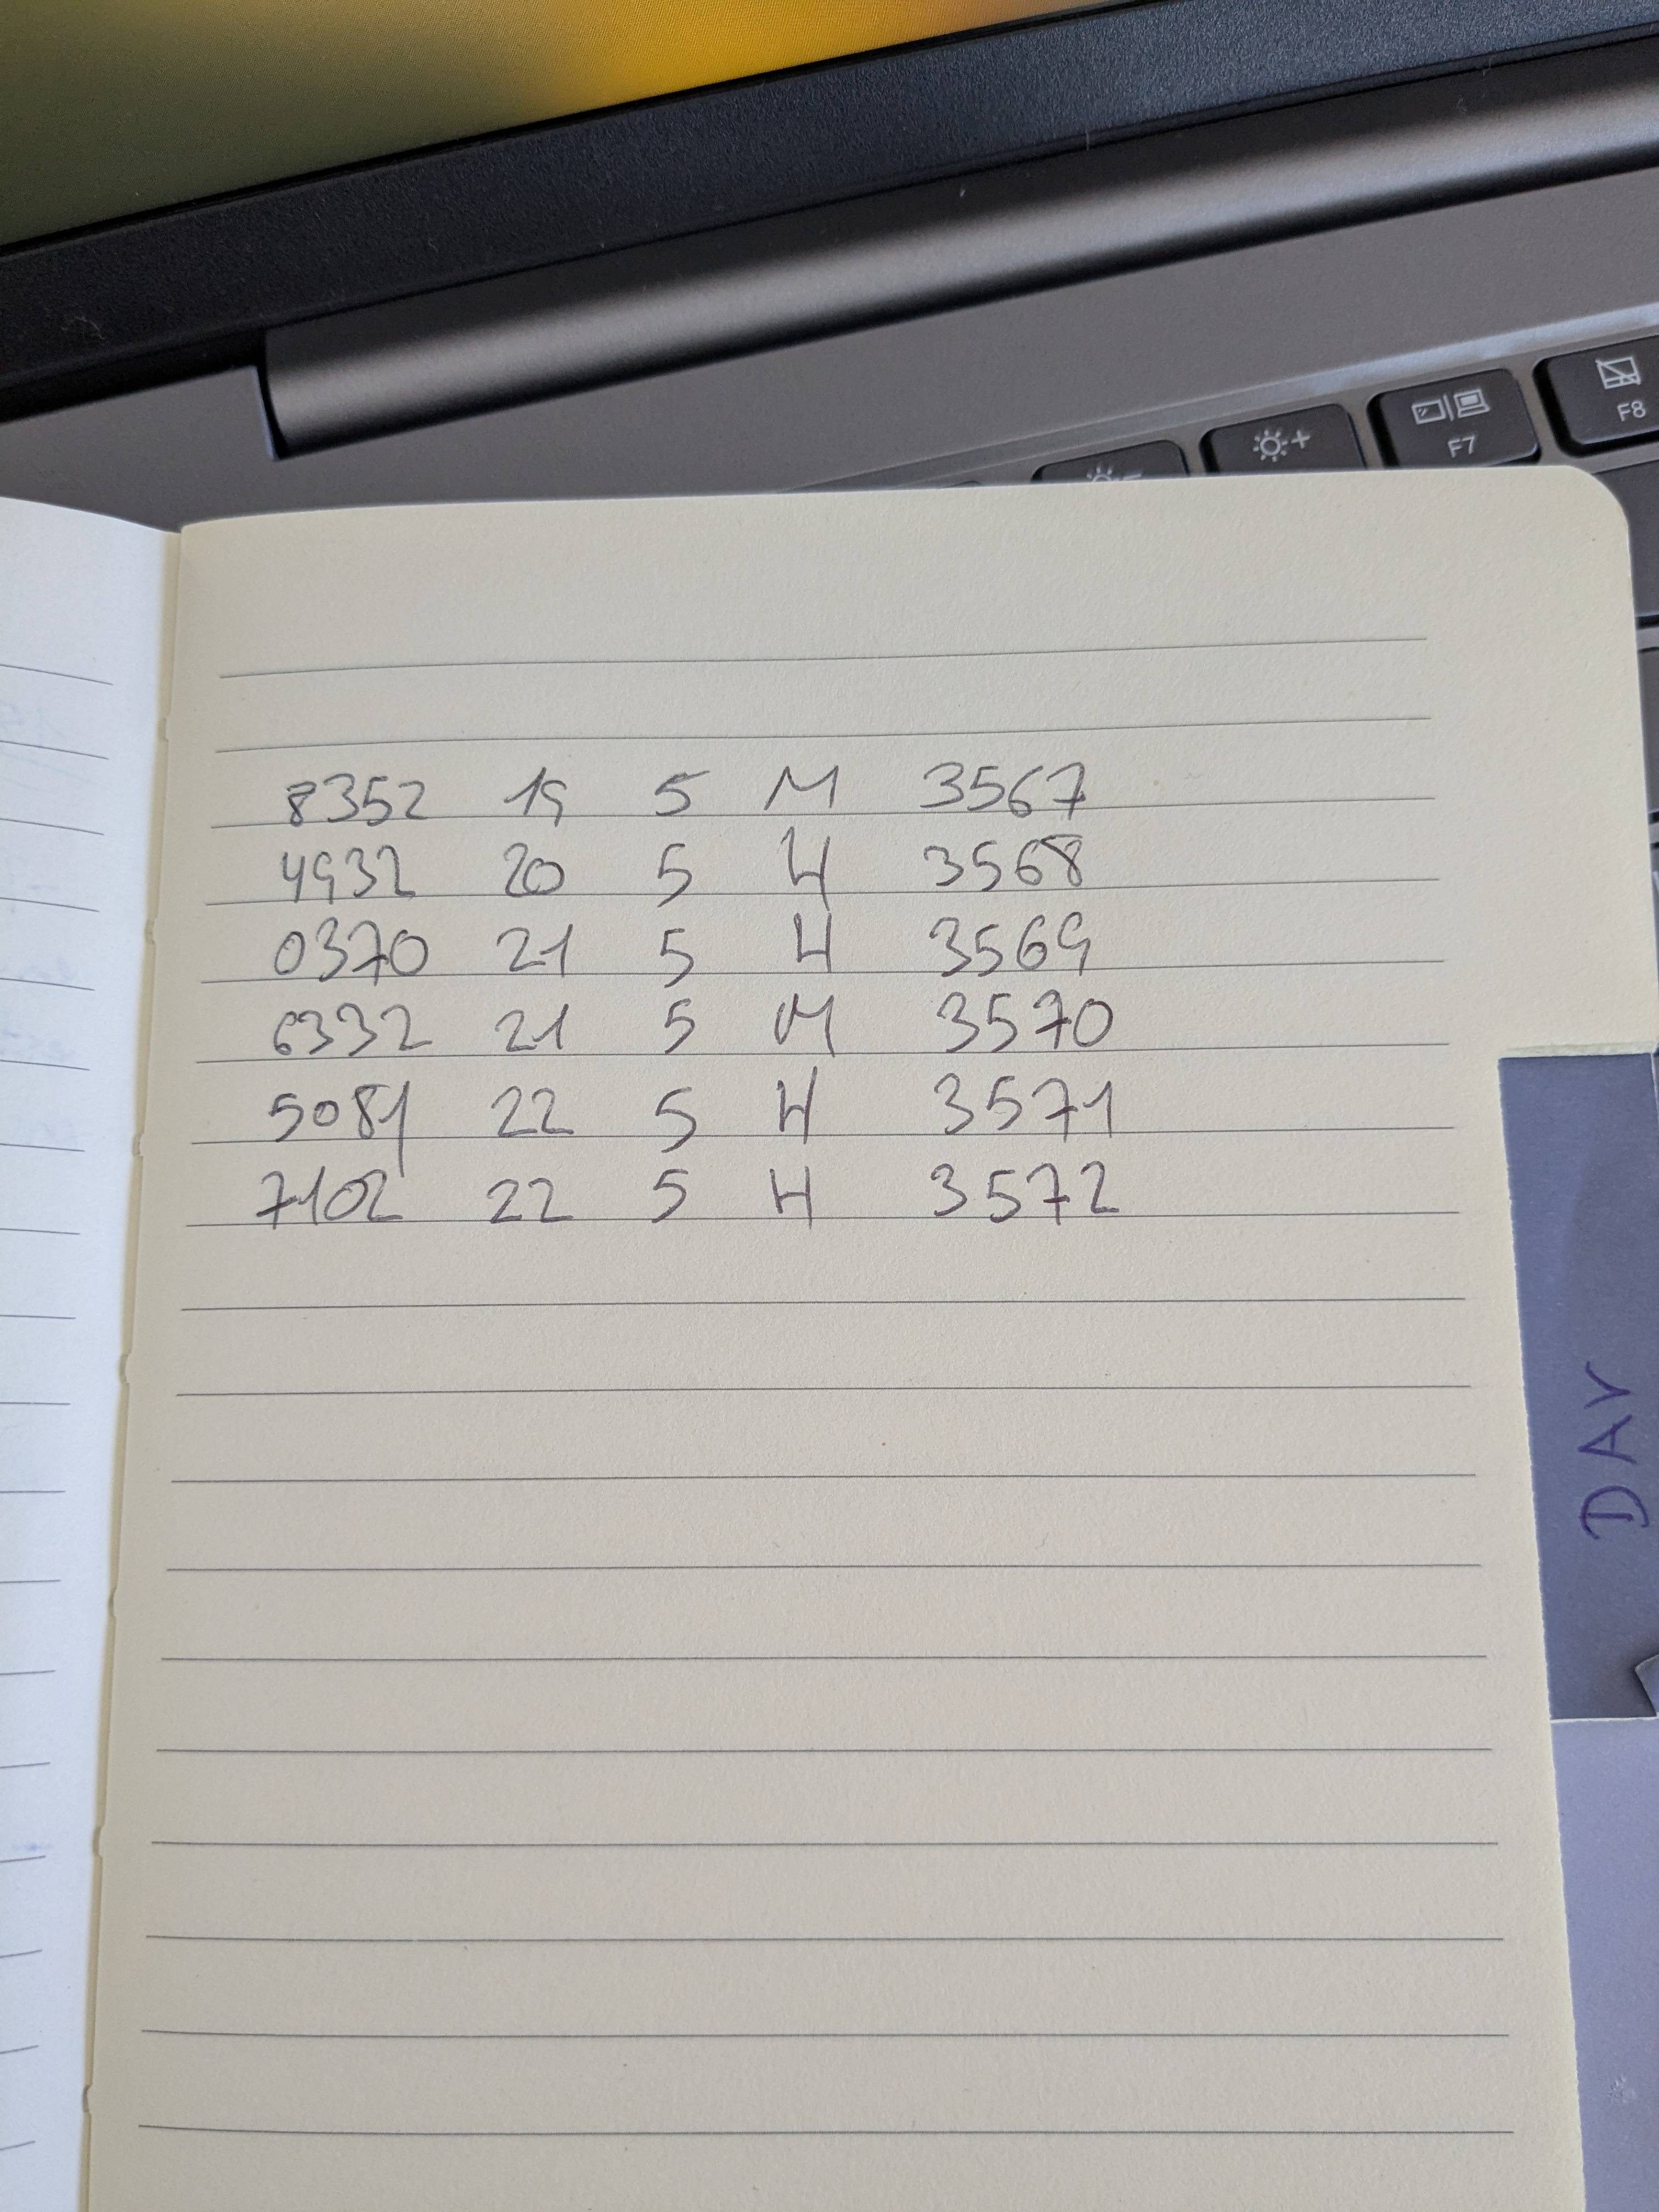 F7
F8
8352 19 5 M 3567
4932 20 5 H 3568
0370 21 5 H 3569
6332 21 5 M 3570
5081 22 5 H 3571
7102 22 5 H 3572
DAV